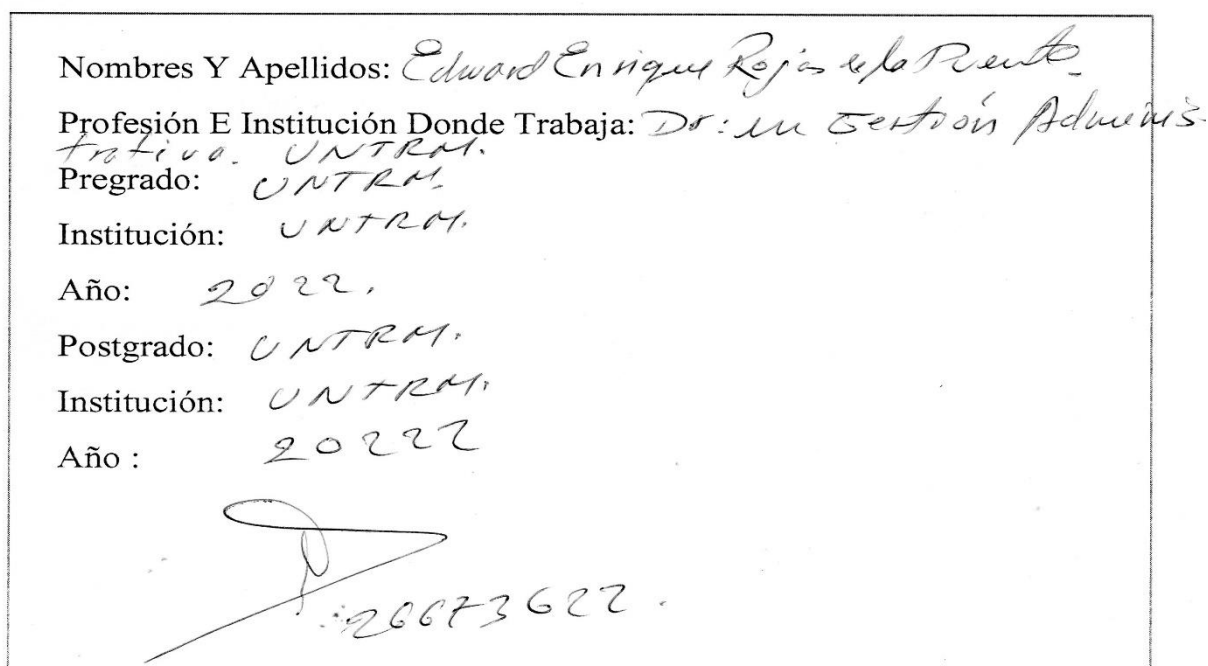 Nombres Y Apellidos: Edward Enrique Rojas de la Puente
Profesión E Institución Donde Trabaja: Dr: en Gestión Adminis-
trativa. UNTRM.
Pregrado: UNTRM.
Institución: UNTRM.
Año: 2022.
Postgrado: UNTRM.
Institución: UNTRM.
Año : 20222
26673622.